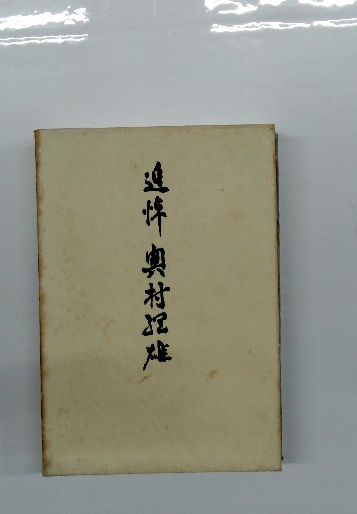 追悼 奥村理雄